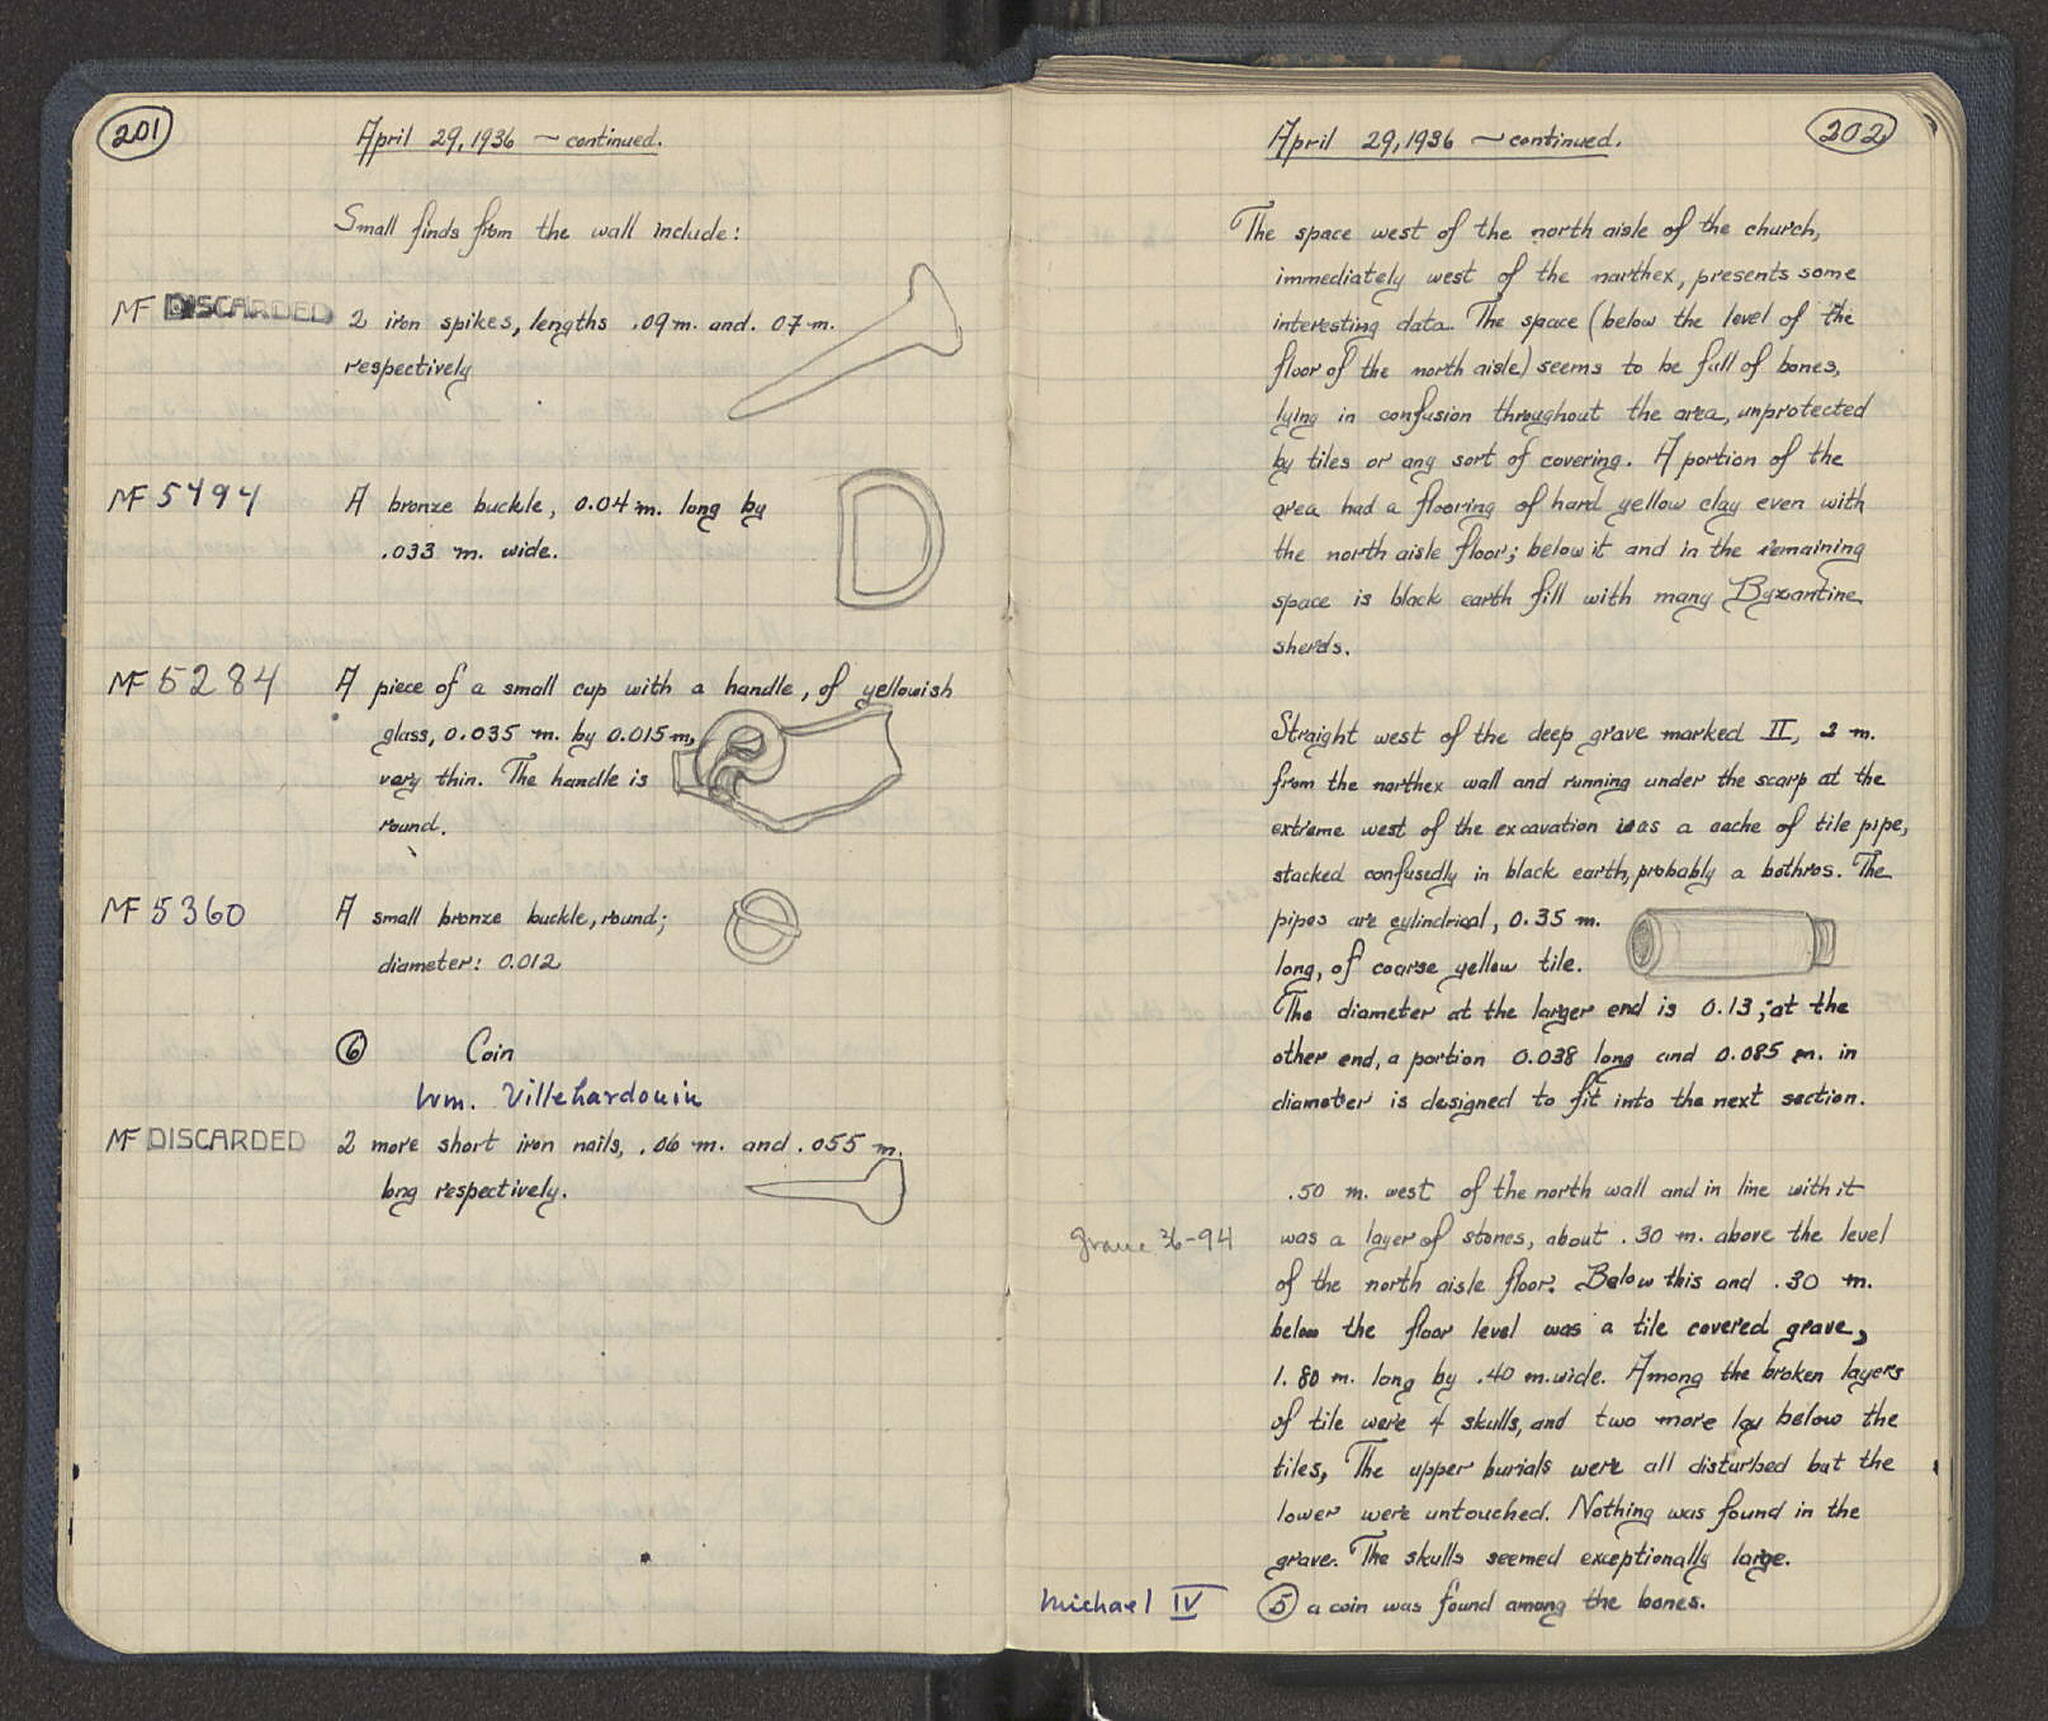 201
April 29, 1936 – continued.
Small finds from the wall include:
MF DISCARDED 2 iron spikes, lengths .09 m. and .07 m.
respectively
MF 5494 A bronze buckle, 0.04 m. long by
.033 m. wide.
MF 5284 A piece of a small cup with a handle, of yellowish
glass, 0.035 m. by 0.015 m,
very thin. The handle is
round.
MF 5360 A small bronze buckle, round;
diameter: 0.012
6 Coin
Wm. Villehardouin
MF DISCARDED 2 more short iron nails, .06 m. and .055 m.
long respectively.
202
April 29, 1936 – continued.
The space west of the north aisle of the church,
immediately west of the narthex, presents some
interesting data. The space (below the level of the
floor of the north aisle) seems to be full of bones,
lying in confusion throughout the area, unprotected
by tiles or any sort of covering. A portion of the
area had a flooring of hard yellow clay even with
the north aisle floor; below it and in the remaining
space is black earth fill with many Byzantine
sherds.
Straight west of the deep grave marked II, 2 m.
from the narthex wall and running under the scarp at the
extreme west of the excavation was a cache of tile pipe,
stacked confusedly in black earth, probably a bothros. The
pipes are cylindrical, 0.35 m.
long, of coarse yellow tile.
The diameter at the larger end is 0.13; at the
other end, a portion 0.038 long and 0.085 m. in
diameter is designed to fit into the next section.
.50 m. west of the north wall and in line with it
grave 36-94 was a layer of stones, about .30 m. above the level
of the north aisle floor. Below this and .30 m.
below the floor level was a tile covered grave,
1.80 m. long by .40 m. wide. Among the broken layers
of tile were 4 skulls, and two more lay below the
tiles, The upper burials were all disturbed but the
lower were untouched. Nothing was found in the
grave. The skulls seemed exceptionally large.
Michael IV 5 a coin was found among the bones.